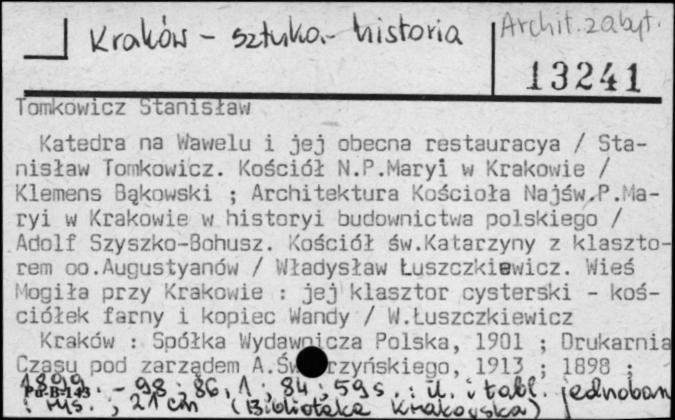 Kraków - sztuka - historia
Archit. zabyt.
13241
Tomkowicz Stanisław
Katedra na Wawelu i jej obecna restauracya / Sta-
nisław Tomkowicz. Kościół N.P.Maryi w Krakowie /
Klemens Bąkowski ; Architektura Kościoła Najśw.P.Ma-
ryi w Krakowie w historyi budownictwa polskiego /
Adolf Szyszko-Bohusz. Kościół św.Katarzyny z klaszto-
rem oo.Augustyanów / Władysław Łuszczkiewicz. Wieś
Mogiła przy Krakowie : jej klasztor cysterski - koś-
ciółek farny i kopiec Wandy / W.Łuszczkiewicz
Kraków : Spółka Wydawnicza Polska, 1901 ; Drukarnia
Czasu pod zarządem A. , 1913 ; 1898 ;
1899. - 98 ; 86, 1 ; 84 ; 59 s. : il. i tabl. jednobarw
Pu-B-143
: rys. ; 21 cm (Biblioteka Krakowska)